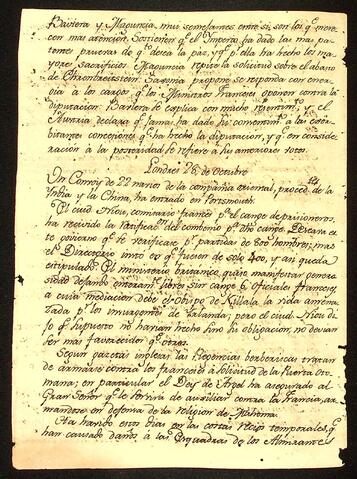 Baviera y Maguncia, mui semejantes entre si, son los q.e merecen
mas atencion. Sostienen q.e el Imperio ha dado las mas patentes
pruevas de q.e desea la paz, y q.e p.r ella ha hecho los mayores
sacrificios. Maguncia repite la solicitud sobre el abasto
de Ehrenbreitstein. Saxonia propone se responda con energia
á los cargos q.e los Ministros Franceses oponen contra la
diputacion. Baviera se explica con mucho resentim.to y el
Austria declara q.e jamas ha dado su consentim.to á las exorbitantes
concesiones q.e ha hecho la diputacion, y q.e en consideracion
á la posteridad se refiere á sus anteriores votos.
Londres 26 de Octubre
Un Comboy de 22 navios de la compañia oriental, proced.tes de la
Yndia y la China, ha entrado en Portsmouth.
El ciud. Niou, comisario frances p.a el cange de prisioneros,
ha recivido la ratificac.n del combenio p.a dho cange. Deseaba este
govierno q.e se verificase p.r partidas de 600 hombres; mas
el Directorio insto en q.e fuesen de solo 400, y asi queda
estipulado. El ministerio britanico, quiso manifestar generosidad
dejando enteram.te libres sin cange 6 oficiales Franceses,
a cuia mediacion debe el Obispo de Killala la vida amenazada
p.r los insurgentes de Yrlanda; pero el ciud. Niou dijo
q.e supuesto no havian hecho sino su obligacion, no devian
ser mas favorecidos q.e otros.
Segun gazetas inglesas las Regencias berberiscas tratan
de armarse contra los franceses á solicitud de la Puerta Otomana;
en particular el Deis de Argel ha asegurado al
Gran Señor q.e le servirá de auxiliar contra la Francia, armandose
en defensa de la religion de Mahoma.
Ha havido estos dias en las costas recios temporales, q.e
han causado daños á las Esquadras de los Almirantes